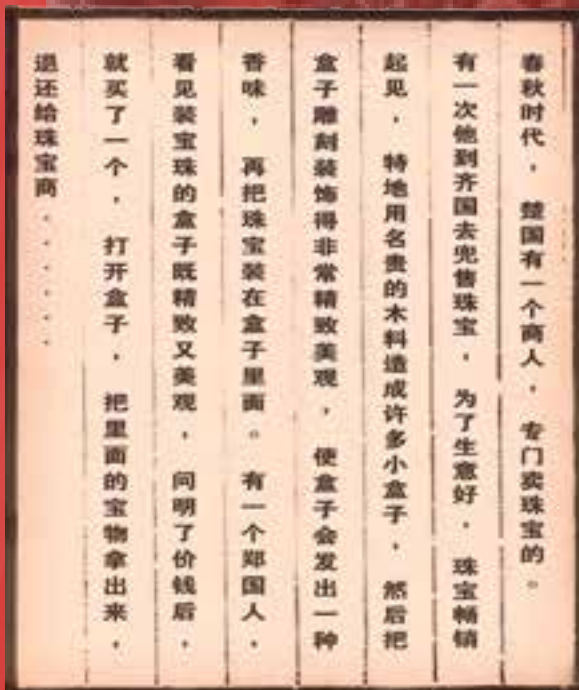 春秋时代，楚国有一个商人，专门卖珠宝的。
有一次他到齐国去兜售珠宝，为了生意好，珠宝畅销
起见，特地用名贵的木料造成许多小盒子，然后把
盒子雕刻装饰得非常精致美观，使盒子会发出一种
香味，再把珠宝装在盒子里面。有一个郑国人，
看见装宝珠的盒子既精致又美观，问明了价钱后，
就买了一个，打开盒子，把里面的宝物拿出来，
退还给珠宝商.......